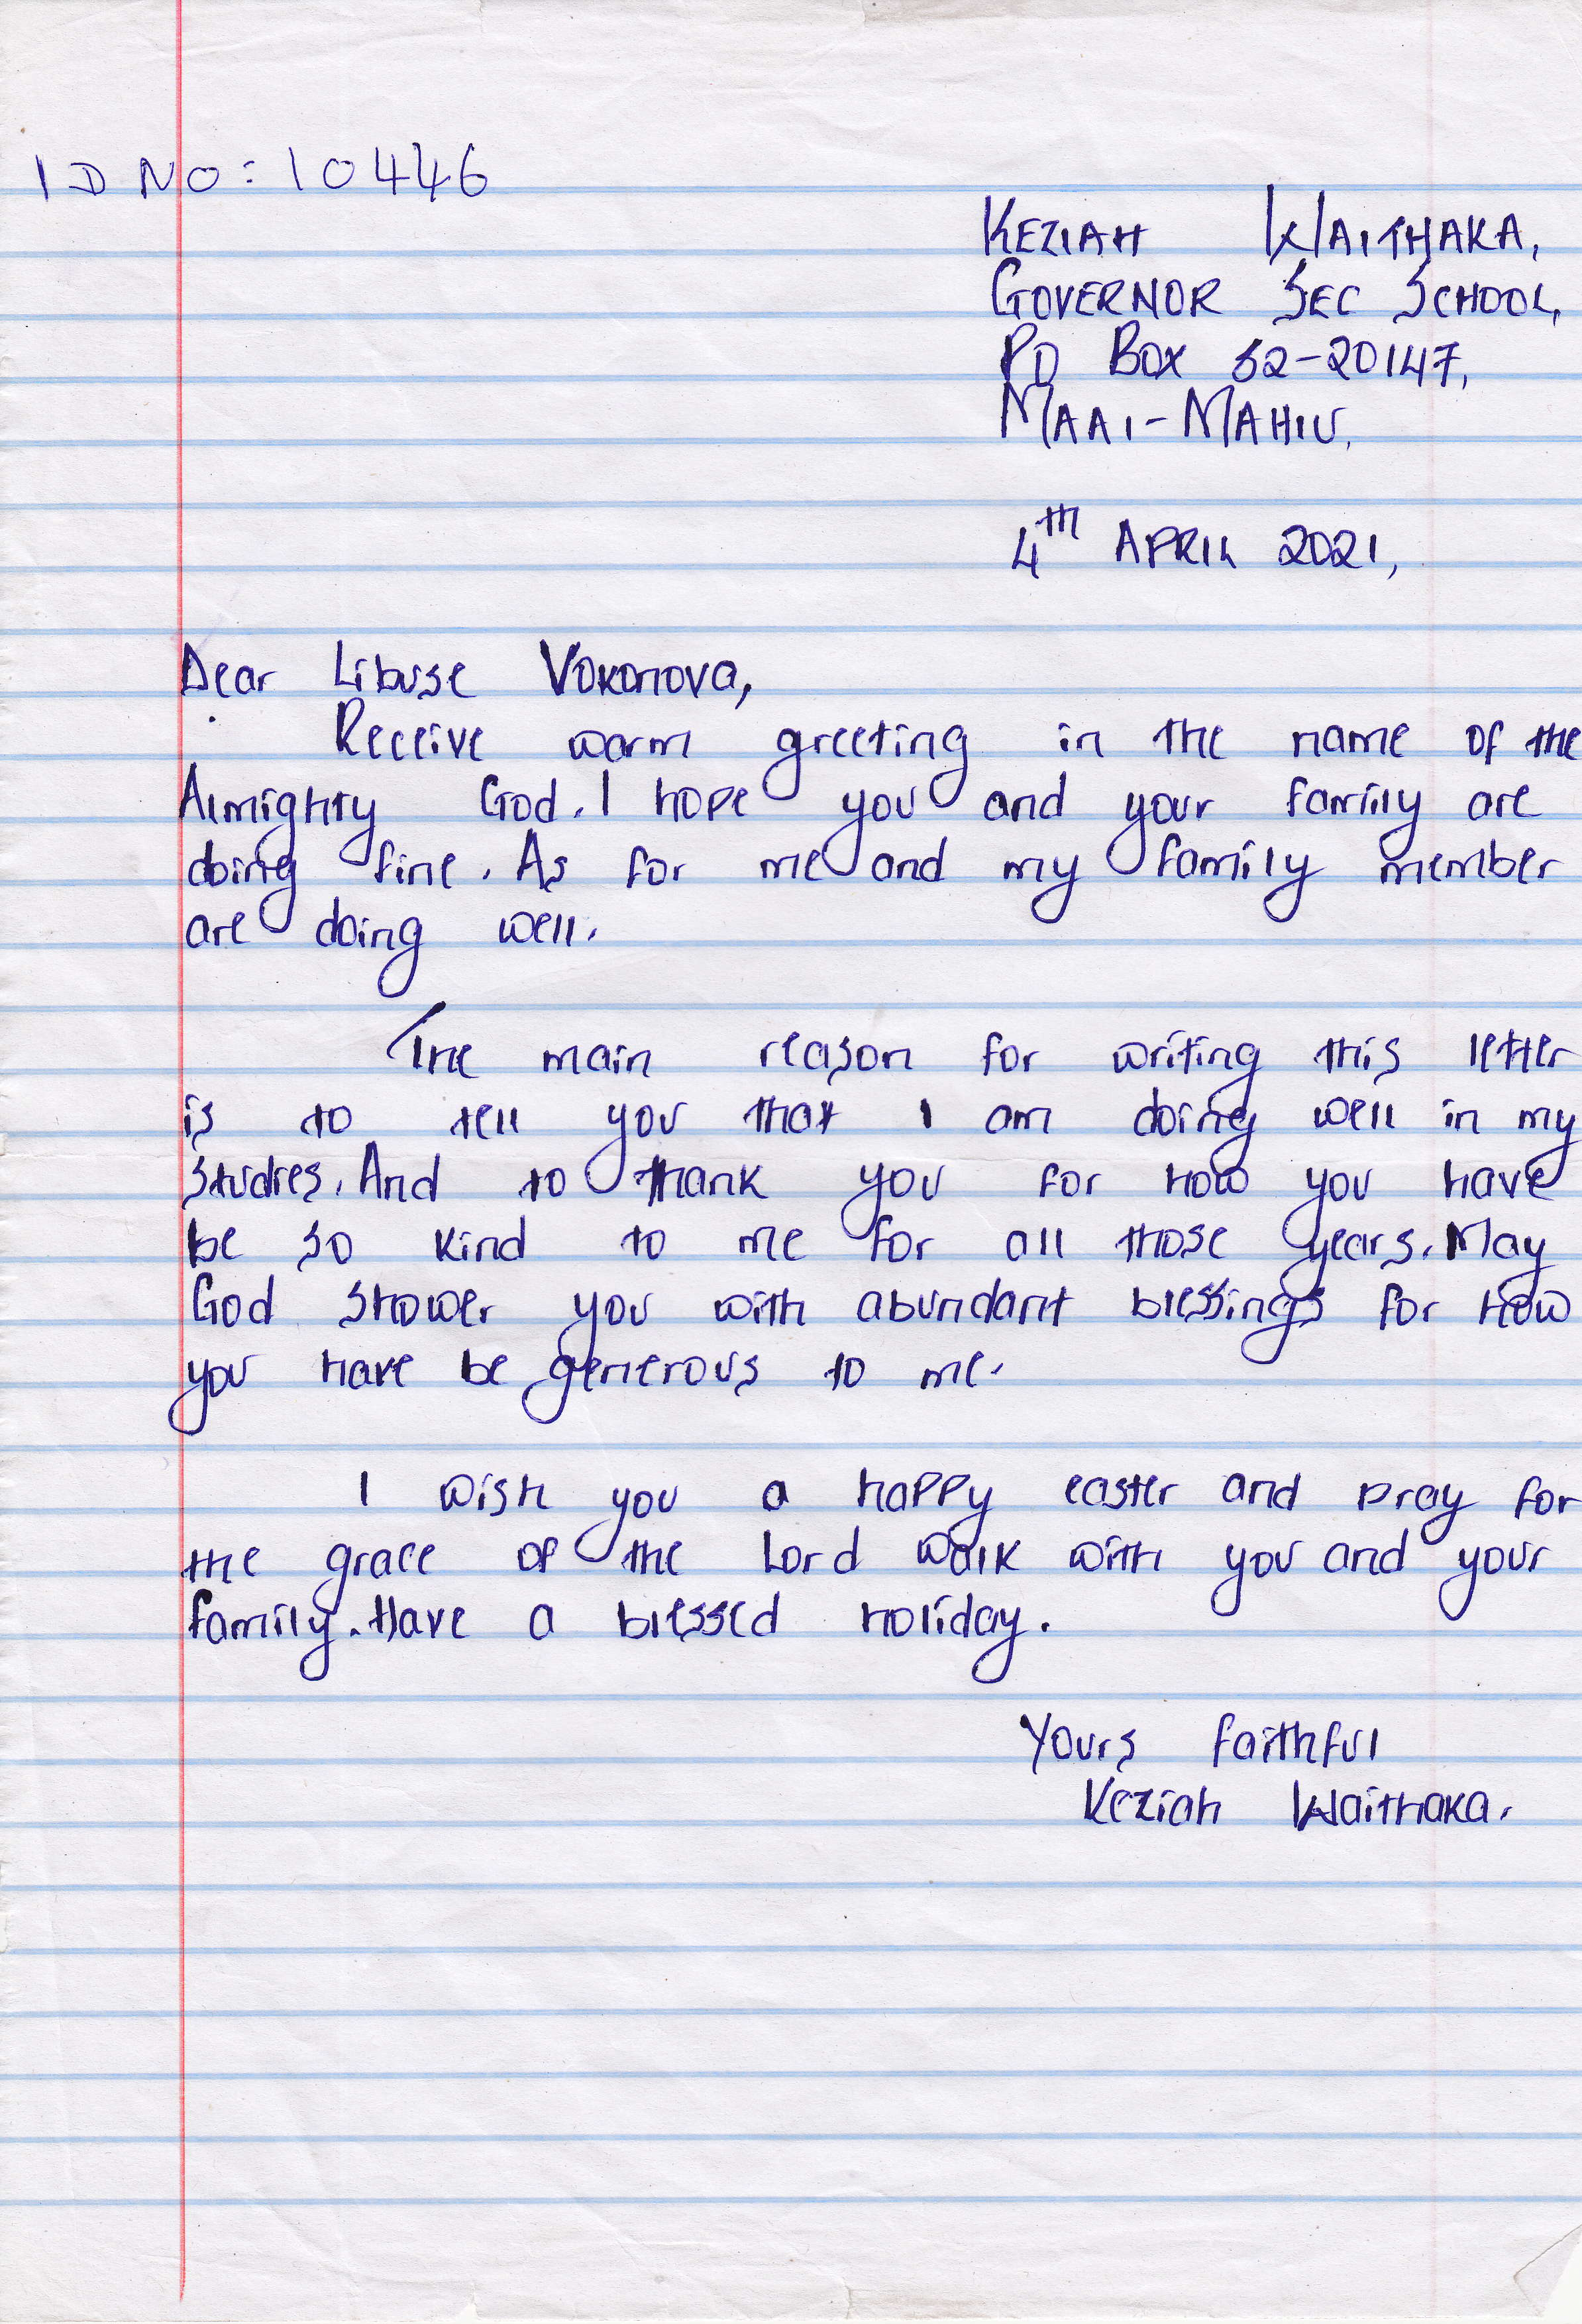 ID NO: 10446
KEZIAH WAITHAKA,
GOVERNOR SEC SCHOOL,
PO BOX 52-20147,
MAAI-MAHIU.
4th APRIL 2021,
Dear Libuse Vokonova,
Receive warm greeting in the name of the
Almighty God. I hope you and your family are
doing fine. As for me and my family member
are doing well.
The main reason for writing this letter
is to tell you that I am doing well in my
studies. And to thank you for how you have
be so kind to me for all those years. May
God shower you with abundant blessings for how
you have be generous to me.
I wish you a happy easter and pray for
the grace of the Lord walk with you and your
family. Have a blessed holiday.
Yours faithful
Keziah Waithaka.